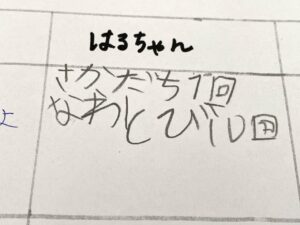 はるちゃん
さかだち1回
なわとび10回
よ